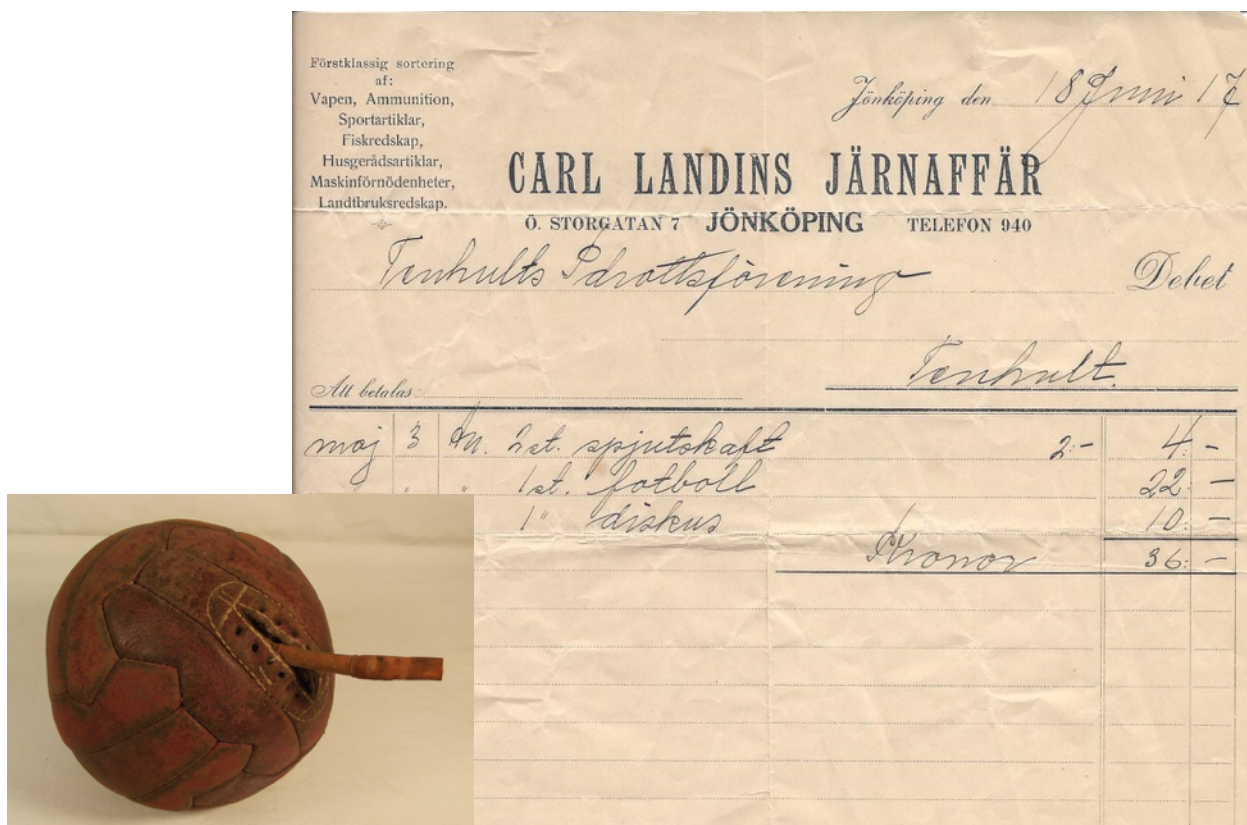 Förstklassig sortering
af:
Vapen, Ammunition,
Sportartiklar,
Fiskredskap,
Husgerådsartiklar,
Maskinförnödenheter,
Landtbruksredskap.
Jönköping den 18 Juni 17
CARL LANDINS JÄRNAFFÄR
Ö. STORGATAN 7 JÖNKÖPING TELEFON 940
Tenhults Idrottsförening Debet
Tenhult.
Att betalas:
maj 3 2 st. spjutskaft 2:- 4:-
" " 1 st. fotboll 22:-
1 " diskus 10:-
Kronor 36:-